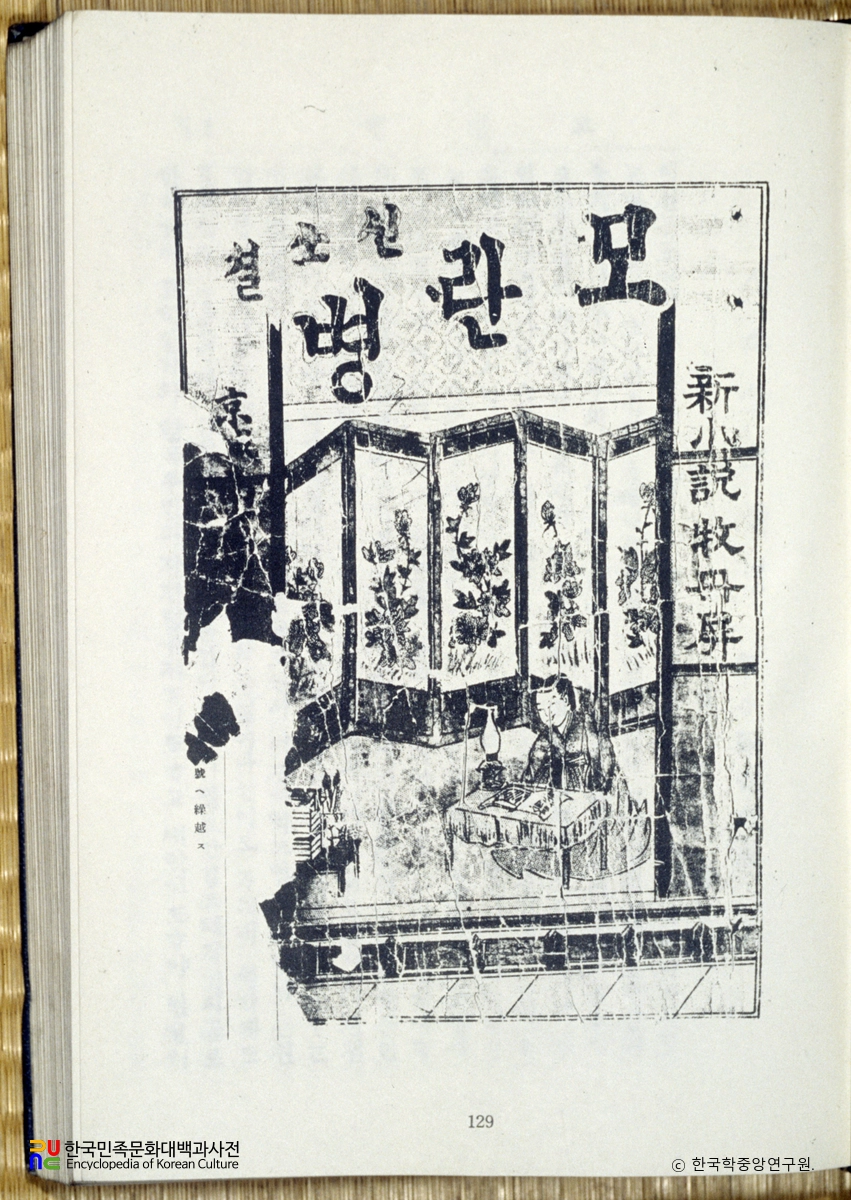 모란병
신소설
新小說牧丹屛
京
號ヘ繰越ス
129
한국민족문화대백과사전
Encyclopedia of Korean Culture
© 한국학중앙연구원.